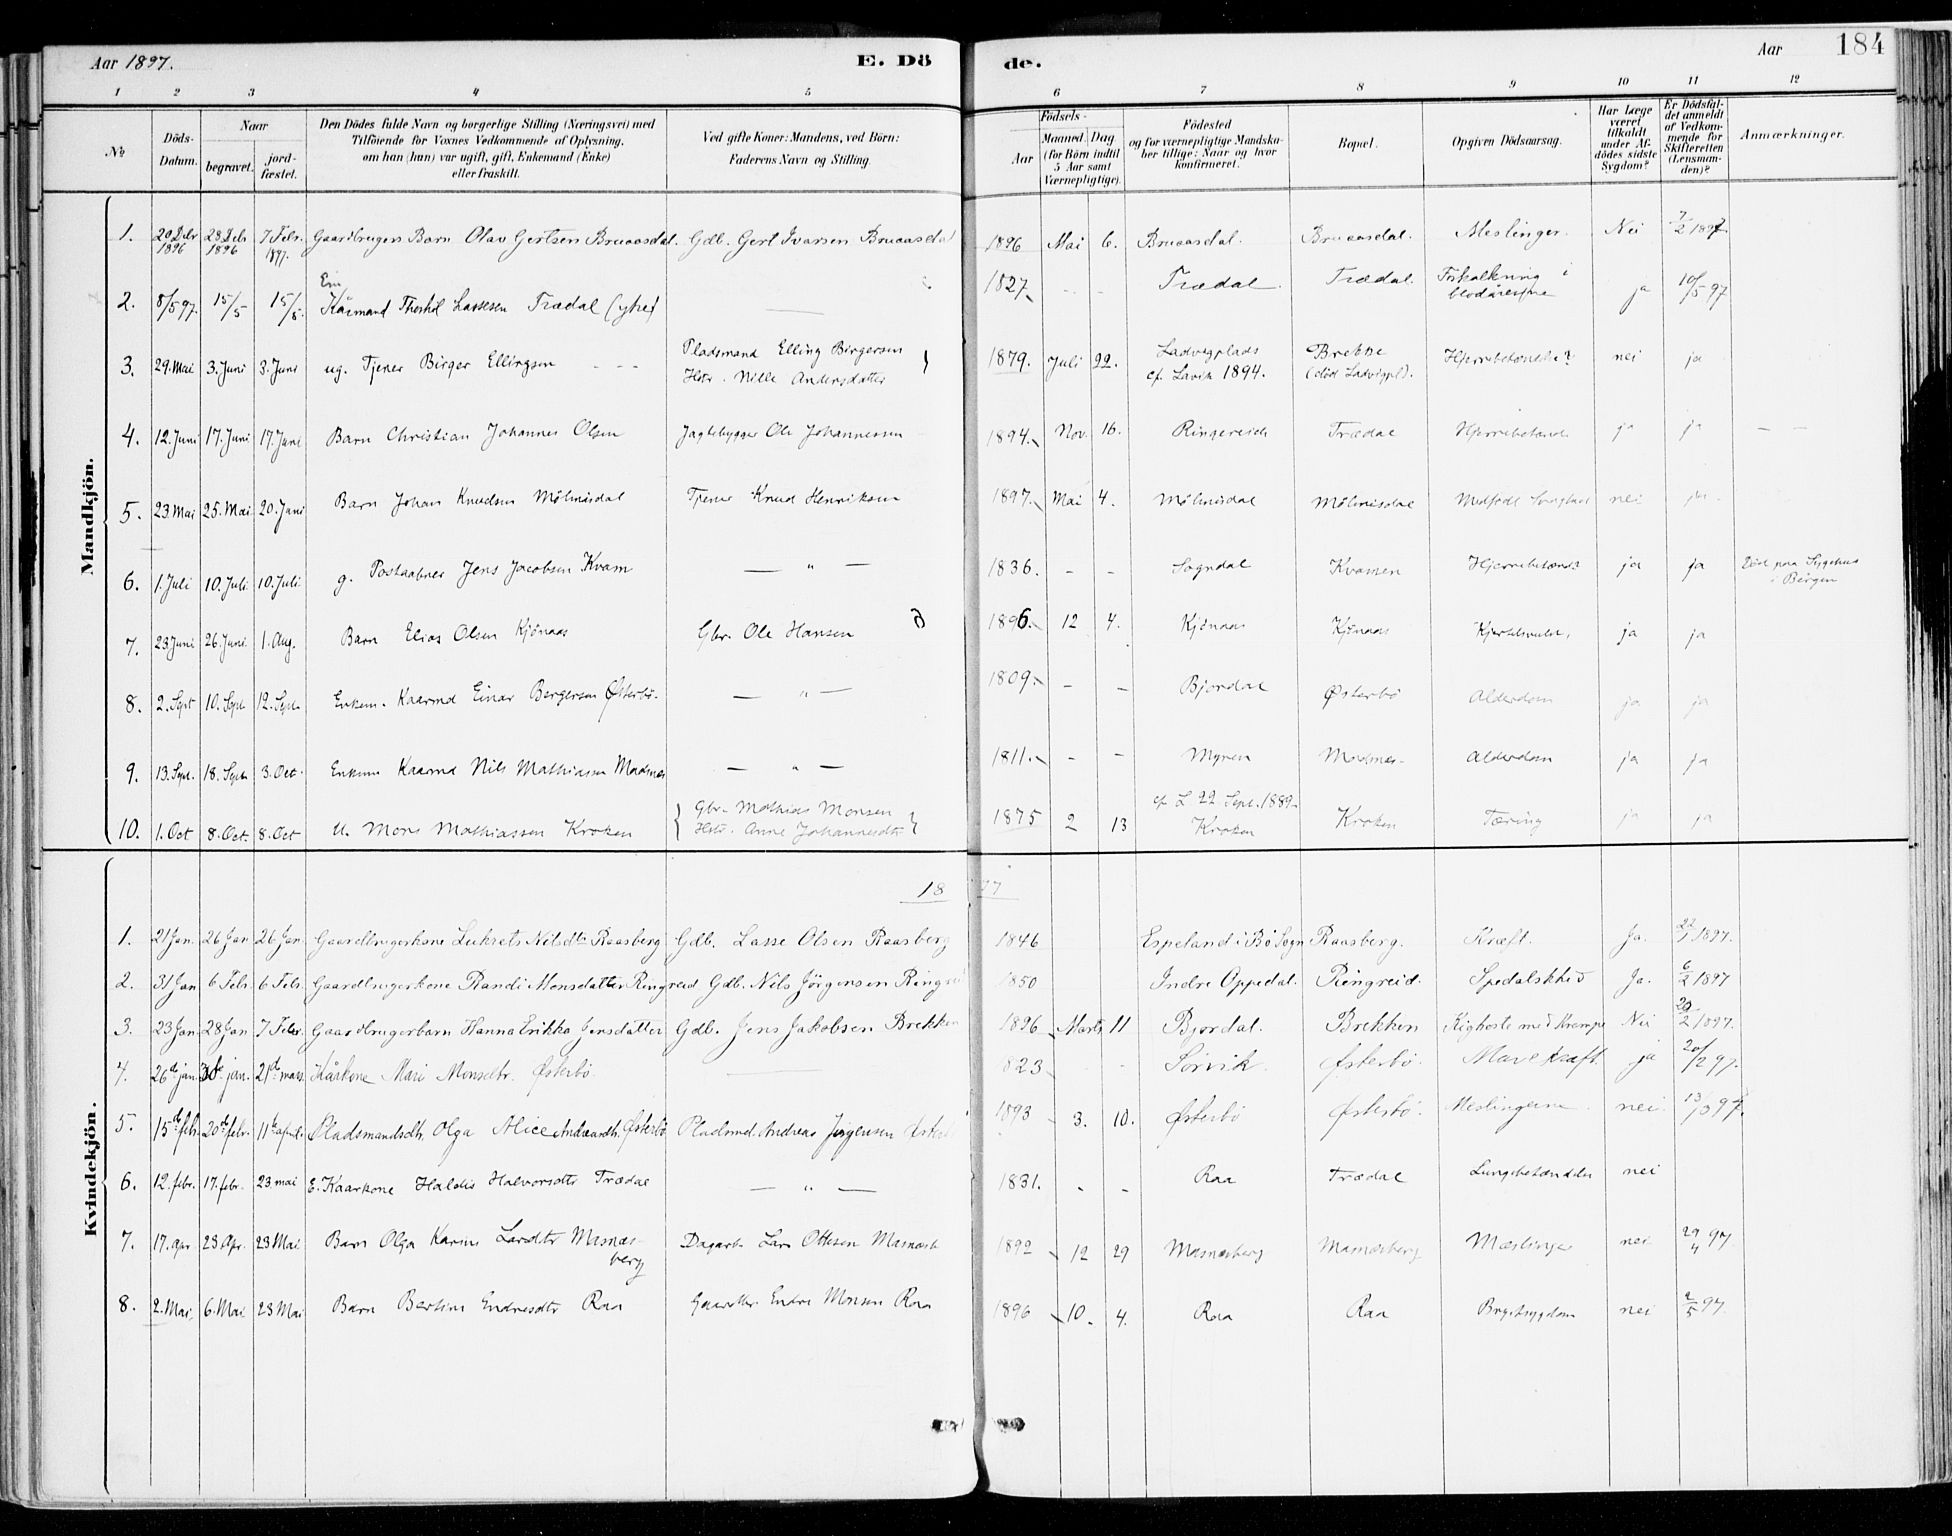 Aar 1897. E. Dö de. Aar 184
1 2 3 4 5 6 7 8 9 10 11 12
No
Döds-Datum.
Naar
begravet. jord-fæstet.
Den Dödes fulde Navn og borgerlige Stilling (Næringsvei) med
Tilföiende for Voxnes Vedkommende af Oplysning,
om han (hun) var ugift, gift, Enkemand (Enke)
eller fraskilt.
Ved gifte Koner: Mandens, ved Börn:
Faderens Navn og Stilling.
Födsels-
Aar Maaned. Dag
(for Börn indtil
5 Aar samt
Værnepligtige).
Födested
og for værnepligtige Mandska-
ber tillige: Naar og hvor
konfirmeret.
Bopæl.
Opgiven Dödsaarsag.
Har Læge
været
tilkaldt
under Af-
dödes sidste
Sygdom?
Er Dödsfal-
det anmeldt
af Vedkom-
mende for
Skifteretten
(Lensman-
den)?
Anmærkninger.
Mandkjön.
1. 29 Debr 1896 28 Deb 1896 7 Febr. 1897. Gaardbrugers Barn Olav Gertsen Bruaasdal. Gdb. Gert Ivarsen Bruaasdal 1896 Mai 6. Bruaasdal. Bruaasdal. Meslinger. Nei 7/2 1897.
2. 8/5 97. 15/5 15/5. Em Kårmand Thorkil Lassesen Trædal (ytre) 1827. - - Trædal. Trædal. Forkalkning i blodårerne ja 10/5 97
3. 29. Mai 3. Juni 3. Juni ug. Tjener Birger Ellingsen Pladsmand Elling Birgersen Hstr. Nille Andersdatter 1879. Juli 22. Ladvigplads cf. Lavik 1894. Brekke (død Ladvigpl). Hjernebetændelse? nei ja
4. 12. Juni 17. Juni 17. Juni Barn Christian Johannes Olsen Jagtebygger Ole Johannessen 1894. Nov. 16. Ringereide Trædal Hjernebetænd. ja ja - -
5. 23 Mai 25. Mai 20. Juni Barn Johan Knudsen Mölmisdal Tjener Knud Henriksen 1897. Mai 4. Mölmisdal Mölmisdal Medfødt Svaghed nei ja
6. 1. Juli 10. Juli 10. Juli g. Postaabner Jens Jacobsen Kvam — " — 1836. - - Sogndal Kvamen Hjernebetænd. ja ja Død paa Sygehus i Bergen
7. 23 Juni 26. Juni 1. Aug. Barn Elias Olsen Kjönaas Gbr. Ole Hansen 1896. 12 4. Kjönaas Kjönaas ja ja
8. 2. Sept 10. Sept 12. Sept. Enkem. Kaarmd Einar Bergersen Østerbö. — " — 1809. - - Bjordal Østerbö Alderdom ja ja
9. 13. Sept. 18. Sept. 3. Oct. Enkem Kaarmd Nils Mathiassen Modnæs — " — 1811. - - Myren Modnæs Alderdom ja ja
10. 1. Oct 8. Oct. 8. Oct U. Mons Mathiassen Kroken Gbr. Mathias Monsen Hstr. Anne Johannesdtr 1875 2 13 cf L 22 Sept. 1889 Kroken Kroken Tæring ja ja
18 97
Kvindekjön.
1. 21 Jan. 26 Jan 26 Jan. Gaardbrugerkone Lukrets Nilsdtr Raasberg Gdb. Lasse Olsen Raasberg 1846 Espeland i Bø Sogn Raasberg. Kræft. Ja. 22/1 1897.
2. 31 Jan 6 Febr. 6 Febr. Gaardbrugerkone Randi Monsdatter Ringreid Gdb. Nils Jörgensen Ringreid 1850 Indre Oppedal. Ringreid. Spedalskhed Ja. 6/2 1897
3. 23 Jan. 28 Jan 7 Febr. Gaardbrugerbarn Hanna Erikka Jensdatter Gdb. Jens Jakobsen Brekken 1896 Marts 11 Bjordal. Brekken Kighoste med Krampe Nei 20/2 1897.
4. 26de jan. 30te jan. 21de mars Kårkone Mari Monsdtr. Østerbö. 1823 - - Sörvik Østerbö. Mavekræft. ja 20/2 97.
5. 15de febr. 20de febr. 11te april Pladsmandsdtr. Olga Alice Andreasdtr. Østerbö Pladsmd. Andreas Jörgensen Østerbö 1893 3. 10. Østerbö Østerbö. Meslingerne. nei. 13/3 97.
6. 12. febr. 17. febr. 23 mai E. Kaarkone Haldis Halvorsdtr Trædal — " — 1831. - - Raa Trædal Lungebetændelse nei
7. 17. Apr. 23. Apr. 23 Mai Barn Olga Karine Larsdtr Masnæs- Dagarb. Lars Ottesen Masnæsb 1892 12 29 Masnæsberg Masnæsberg Mæslinger nei 29/4 97.
berg
8. 2. Mai. 6. Mai 23 Mai Barn Bertine Endresdtr Raa Gaardbr. Endre Monsen Raa 1896 10. 4. Raa Raa Brystsygdom nei 2/5 97.